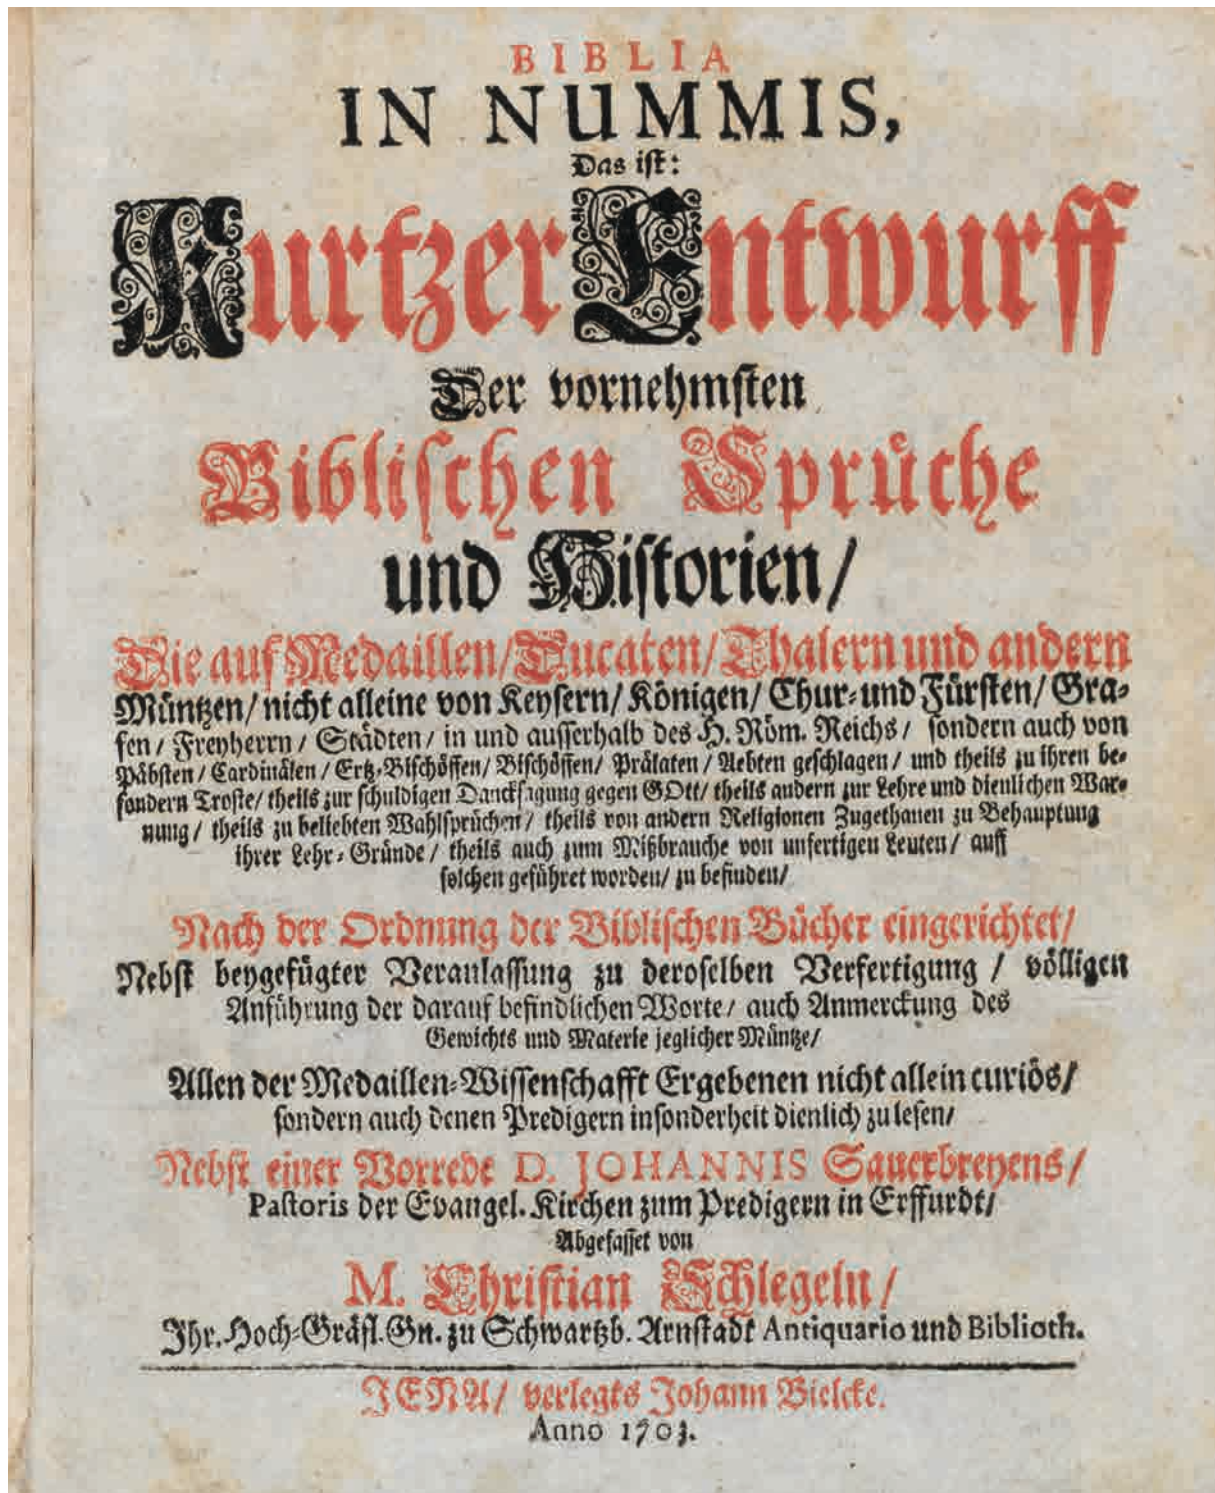 BIBLIA
IN NUMMIS,
Das iſt:
Kurtzer Entwurff
Der vornehmſten
Bibliſchen Sprüche
und Hiſtorien/
Die auf Medaillen/Ducaten/Thalern und andern
Müntzen/ nicht alleine von Keyſern/ Königen/ Chur-und Fürſten/ Gra-
fen/ Freyherrn/ Städten/ in und auſſerhalb des H. Röm. Reichs/ ſondern auch von
Päbſten/ Cardinälen/ Ertz-Biſchöffen/ Biſchöffen/ Prälaten/ Aebten geſchlagen/ und theils zu ihren be-
ſondern Troſte/ theils zur ſchuldigen Danckſagung gegen GOtt/ theils andern zur Lehre und dienlichen War-
nung/ theils zu beliebten Wahlſprüchen/ theils von andern Religionen Zugethanen zu Behauptung
ihrer Lehr-Gründe/ theils auch zum Mißbrauche von unfertigen Leuten/ auff
ſolchen geführet worden/ zu befinden/
Nach der Ordnung der Bibliſchen Bücher eingerichtet/
Nebſt beygefügter Veranlaſſung zu deroſelben Verfertigung/ völligen
Anführung der darauf befindlichen Worte/ auch Anmerckung des
Gewichts und Materie jeglicher Müntze/
Allen der Medaillen-Wiſſenſchafft Ergebenen nicht allein curiös/
ſondern auch denen Predigern inſonderheit dienlich zu leſen/
Nebſt einer Vorrede D. JOHANNIS Sauerbreyens/
Paſtoris der Evangel. Kirchen zum Predigern in Erffurdt/
Abgefaſſet von
M. Chriſtian Schlegeln/
Ihr. Hoch-Gräfl. Gn. zu Schwartzb. Arnſtadt Antiquario und Biblioth.
JENA/ verlegts Johann Bielcke.
Anno 1703.